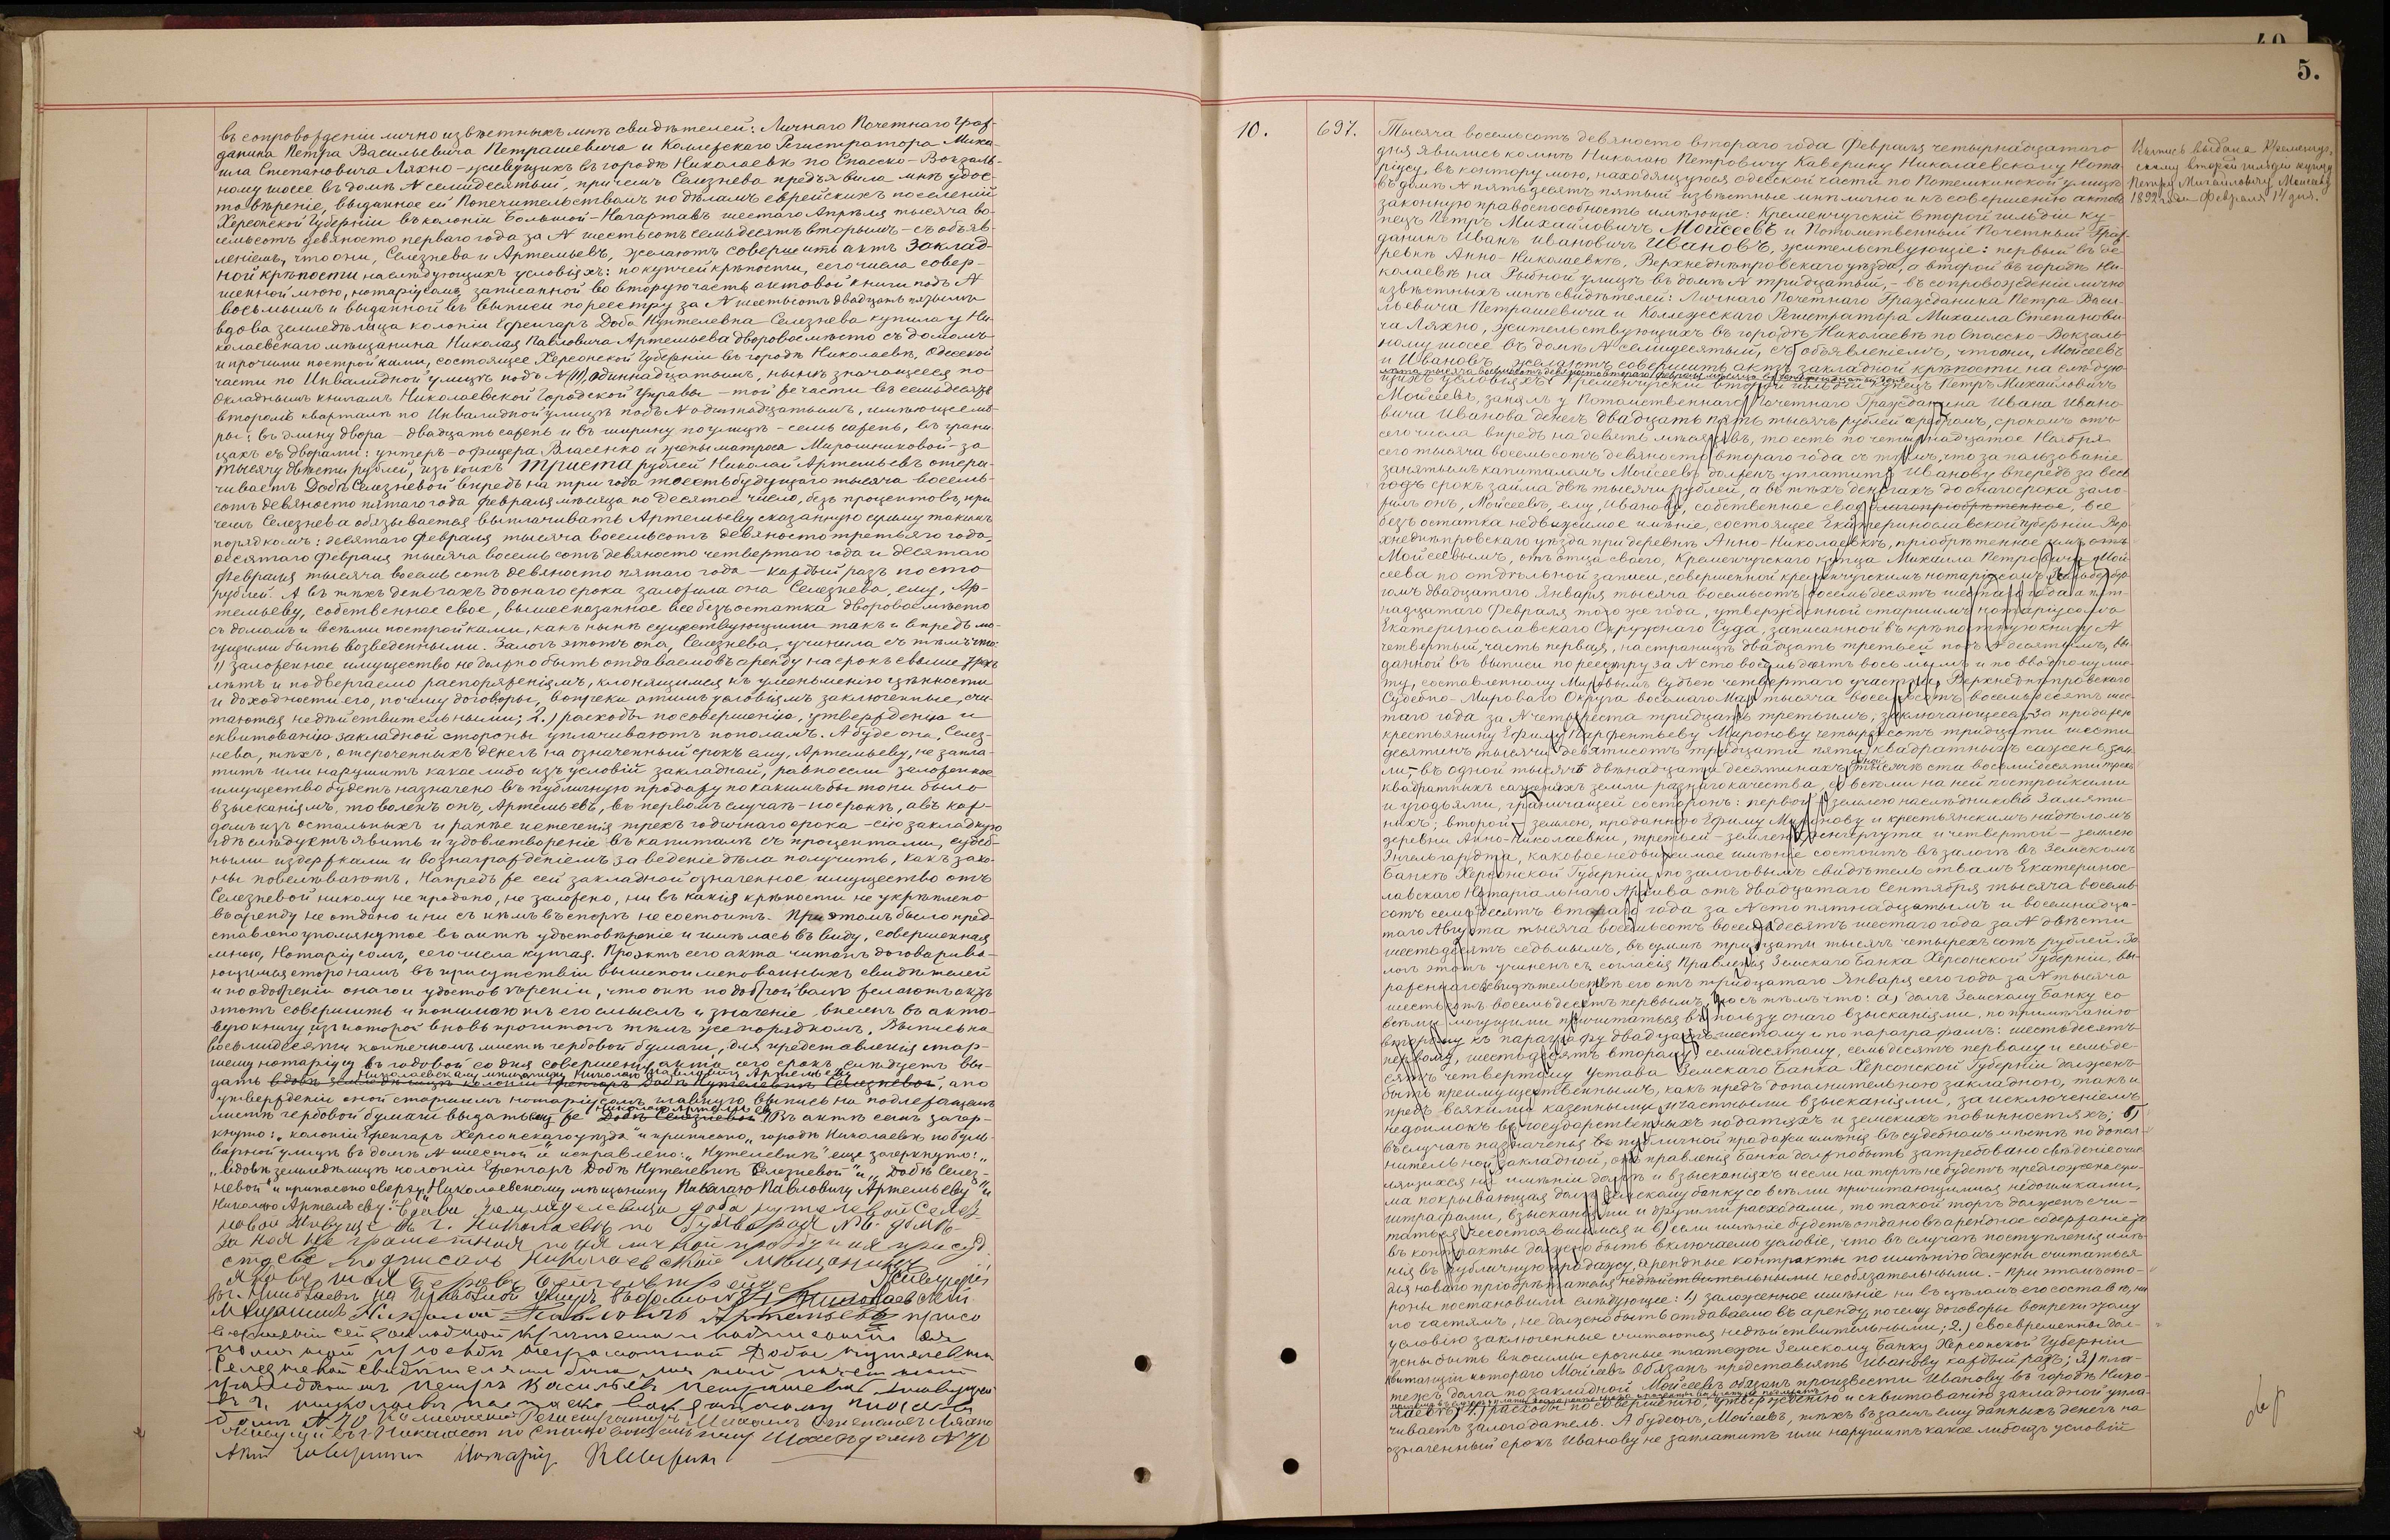 въ сопровожденіи лично извѣстныхъ мнѣ свидѣтелей: Личнаго Почетнаго Граж-
данина Петра Васильевича Петрашевича и Коллежскаго Регистратора Миха-
ила Степановича Ляхно - живущихъ въ городѣ Николаевѣ по Спасско-Вокзаль-
ному шоссе въ домѣ № семидесятый, причемъ Селезнева предъявила мнѣ удос-
товѣреніе, выданное ей Попечительствомъ по дѣламъ еврейскихъ поселеній
Херсонской Губерніи въ колоніи Большой-Нагартавъ шестаго Апрѣля тысяча во-
семьсотъ девяносто перваго года за № шестьсотъ семьдесятъ вторымъ - съ объяв-
леніемъ, что они, Селезнева и Артемьевъ, желаютъ совершить актъ заклад-
ной крѣпости на слѣдующихъ условіяхъ: по купчей крѣпости, сего числа совер-
шенной мною, нотаріусомъ, записанной во вторую часть актовой книги подъ №
восьмымъ и выданной въ выписи по реестру за № шестьсотъ двадцать
вдова земледѣльца колоніи Ефенгаръ Доба Нутелевна Селезнева купила у Ни-
колаевскаго мѣщанина Николая Павловича Артемьева дворовое мѣсто съ домомъ
и прочими постройками, состоящее Херсонской Губерніи въ городѣ Николаевѣ, Одесской
части по Инвалидной улицѣ подъ № (11), одиннадцатымъ, нынѣ значащееся по
Окладнымъ книгамъ Николаевской Городской Управы - той же части въ семьдесятъ
второмъ кварталѣ по Инвалидной улицѣ подъ № одиннадцатымъ, имѣющее мѣ-
ры: въ длину двора - двадцать сажень и въ ширину по улицѣ - семь сажень, въ грани-
цахъ съ дворами: унтеръ-офицера Власенко и жены матроса Мирошниковой - за
тысячу двѣсти рублей, изъ коихъ триста рублей Николай Артемьевъ отсро-
чиваетъ Добѣ Селезневой впредь на три года то есть будущаго тысяча восемь-
сотъ девяносто пятаго года февраля мѣсяца по десятое число, безъ процентовъ, при
чемъ Селезнева обязывается выплачивать Артемьеву сказанную сумму такимъ
порядкомъ: десятаго февраля тысяча восемьсотъ девяносто третьяго года,
десятаго февраля тысяча восемьсотъ девяносто четвертаго года и десятаго
февраля тысяча восемьсотъ девяносто пятаго года - каждый разъ по сто
рублей. А въ тѣхъ деньгахъ до онаго срока заложила она Селезнева, ему, Ар-
темьеву, собственное свое, вышесказанное все безъ остатка дворовое мѣсто
съ домомъ и всѣми постройками, какъ нынѣ существующими такъ и впредь мо-
гущими быть возведенными. Залогъ этотъ она, Селезнева, учинила съ тѣмъ что:
1) заложенное имущество не должно быть отдаваемо въ аренду на срокъ свыше трехъ
лѣтъ и подвергаемо распоряженіямъ, клонящимся къ уменьшенію цѣнности
и доходности его, почему договоры, вопреки этимъ условіямъ заключенные, счи-
таются недѣйствительными; 2.) расходы по совершенію, утвержденію и
сквитованію закладной стороны уплачиваютъ пополамъ. А буде она, Селез-
нева, тѣхъ, отсроченныхъ денегъ на означенный срокъ ему, Артемьеву, не запла-
титъ или нарушитъ какое либо изъ условій закладной, равно если заложенное
имущество будетъ назначено въ публичную продажу по какимъ бы то ни было
взысканіямъ, то воленъ онъ, Артемьевъ, въ первомъ случаѣ - по срокѣ, а въ каж-
домъ изъ остальныхъ и ранѣе истеченія трехъ годичнаго срока - сію закладную
гдѣ слѣдуетъ явить и удовлетвореніе въ капиталѣ съ процентами, судеб-
ными издержками и вознагражденіемъ за веденіе дѣла получить, какъ зако-
ны повелѣваютъ. Напредъ же сей закладной означенное имущество отъ
Селезневой никому не продано, не заложено, ни въ какія крѣпости не укрѣплено
въ аренду не отдано и ни съ кѣмъ въ спорѣ не состоитъ. При этомъ было пред-
ставлено упомянутое въ актѣ удостовѣреніе и имѣлась въ виду, совершенная
мною, Нотаріусомъ, сего числа купчая. Проэктъ сего акта читанъ договарива-
ющимся сторонамъ въ присутствіи вышепоименованныхъ свидѣтелей
и по одобреніи онаго и удостовѣреніи, что они по доброй волѣ желаютъ актъ
этотъ совершить и понимаютъ его смыслъ и значеніе, внесенъ въ акто-
вую книгу изъ которой вновь прочитанъ тѣмъ же порядкомъ. Выпись на
восьмидесяти копѣечномъ листѣ гербовой бумаги, для представленія стар-
шему нотаріусу въ годовой со дня совершенія акта сего срокъ слѣдуетъ вы-
Николаевскому мѣщанину Николаю Павловичу Артемьеву
дать вдовѣ земледѣльца колоніи Ефенгаръ Добѣ Нутелевнѣ Селезневой, а по
утвержденіи оной старшимъ нотаріусомъ главную выпись на подлежащемъ
Николаю Артемьеву
листѣ гербовой бумаги выдать ему же Добѣ Селезневой. Въ актѣ семъ зачер-
кнуто: „колоніи Ефенгаръ Херсонскаго уѣзда" и приписано „городѣ Николаевѣ по буль-
варной улицѣ въ домѣ № шестой" и исправлено: „Нутелевнѣ" еще зачеркнуто:
„вдовѣ земледѣльца колоніи Ефенгаръ Добѣ Нутелевнѣ Селезневой" и „Добѣ Селез-
невой" и приписано сверху „Николаевскому мѣщанину Николаю Павловичу Артемьеву" и
Николаю Артемьеву". Вдова
въ г. Николаевѣ по
подписалъ Николаевскій мѣщанинъ
Николаевскій
мѣщанинъ Николай Павловичъ Артемьевъ
сей закладной крѣпости
Селезневой свидѣтелями
гражданинъ Петръ Васильевъ Петрашевичъ живущій
домъ № 70 Коллежскій Регистраторъ Михаилъ Степановъ Ляхно
живущій въ г. Николаевѣ по Спасско вокзальному шоссе въ домѣ № 70
Нотаріусъ
5.
10.
697.
Тысяча восемьсотъ девяносто втораго года Февраля четырнадцатаго
дня явились ко мнѣ Николаю Петровичу Каверину Николаевскому Нота-
ріусу, въ контору мою, находящуюся Одесской части по Потемкинской улицѣ
въ домѣ № пятьдесятъ пятый извѣстные мнѣ лично и къ совершенію актовъ
законную правоспособность имѣющіе: Кременчугскій второй гильдіи ку-
пецъ Петръ Михайловичъ Моисеевъ и Потомственный Почетный Граж-
данинъ Иванъ Ивановичъ Ивановъ, жительствующіе: первый въ де-
ревнѣ Анно-Николаевкѣ, Верхнеднѣпровскаго уѣзда, а второй въ городѣ Ни-
колаевѣ на Рыбной улицѣ въ домѣ № тридцатый, - въ сопровожденіи лично
извѣстныхъ мнѣ свидѣтелей: Личнаго Почетнаго Гражданина Петра Васи-
льевича Петрашевича и Коллежскаго Регистратора Михаила Степанови-
ча Ляхно, жительствующихъ въ городѣ Николаевѣ по Спасско-Вокзаль-
ному шоссе въ домѣ № семидесятый, съ объявленіемъ, что они, Моисеевъ
и Ивановъ, желаютъ совершить актъ закладной крѣпости на слѣдую-
лѣта тысяча восемьсотъ девяносто втораго февраля мѣсяца въ четырнадцатый день
щихъ условіяхъ: Кременчугскій второй гильдіи купецъ Петръ Михайловичъ
Моисеевъ, занялъ у Потомственнаго Почетнаго Гражданина Ивана Ивано-
вича Иванова денегъ двадцать пять тысячъ рублей серебромъ, срокомъ отъ
сего числа впредь на девять мѣсяцевъ, то есть по четырнадцатое Ноября
сего тысяча восемьсотъ девяносто втораго года съ тѣмъ, что за пользованіе
занятымъ капиталомъ Моисеевъ долженъ уплатить Иванову впередъ за весь
годъ срокъ займа двѣ тысячи рублей, а въ тѣхъ деньгахъ до онаго срока зало-
жилъ онъ, Моисеевъ, ему, Иванову, собственное свое благопріобрѣтенное, все
безъ остатка недвижимое имѣніе, состоящее Екатеринославской губерніи Вер-
хнеднѣпровскаго уѣзда при деревнѣ Анно-Николаевкѣ, пріобрѣтенное имъ отъ
Моисеевымъ, отъ отца своего, Кременчугскаго купца Михаила Петровича Мои-
сеева по отдѣльной записи, совершенной кременчугскимъ нотаріусомъ
гомъ двадцатаго Января тысяча восемьсотъ восемьдесятъ шестаго года а пят-
надцатаго Февраля того же года, утвержденной старшимъ нотаріусомъ
Екатеринославскаго Окружнаго Суда, записанной въ крѣпостную книгу №
четвертый, часть первая, на страницѣ двадцать третьей подъ № десятымъ, вы-
данной въ выписи по реестру за № сто восемьдесятъ восьмымъ и по вводному лис-
ту, составленному Мировымъ Судьею четвертаго участка, Верхнеднѣпровскаго
Судебно-Мироваго Округа восьмаго Мая тысяча восемьсотъ восемьдесятъ шес-
таго года за № четыреста тридцать третьимъ, заключающееся, за продажею
крестьянину Ефиму Парфентьеву Миронову четырехсотъ тридцати шести
десятинъ тысячи девятисотъ тридцати пяти квадратныхъ саженъ зем-
ли, - въ одной тысячѣ двѣнадцати десятинахъ тысячѣ ста восьмидесяти трехъ
квадратныхъ саженяхъ земли разнаго качества, со всѣми на ней постройками
и угодьями, граничащей со сторонъ: первой - землею наслѣдниковъ Замяти-
ныхъ; второй - землею, проданною Ефиму Миронову и крестьянскимъ надѣломъ
деревни Анно-Николаевки, третьей - землею и четвертой - землею
Энгельгардта, каковое недвижимое имѣніе состоитъ въ залогѣ въ Земскомъ
Банкѣ Херсонской Губерніи по залоговымъ свидѣтельствамъ Екатеринос-
лавскаго Нотаріальнаго Архива отъ двадцатаго Сентября тысяча восемь-
сотъ семьдесятъ втораго года за № сто пятнадцатымъ и восемнадца-
таго Августа тысяча восемьсотъ восемьдесятъ шестаго года за № двѣсти
шестьдесятъ седьмымъ, въ суммѣ тридцати тысячъ четырехсотъ рублей. За-
логъ этотъ учиненъ съ согласія Правленія Земскаго Банка Херсонской Губерніи, вы-
раженнаго въ свидѣтельствѣ его отъ тридцатаго Января сего года за № тысяча
шестьсотъ восемьдесятъ первымъ, но съ тѣмъ что: а) долгъ Земскому Банку со
всѣми могущими причитаться въ пользу онаго взысканіями, по примѣчанію
второму къ параграфу двадцать шестому и по параграфамъ: шестьдесятъ
первому, шестьдесятъ второму, семидесятому, семьдесятъ первому и семьде-
сятъ четвертому устава Земскаго Банка Херсонской Губерніи долженъ
быть преимущественнымъ, какъ предъ дополнительною закладною, такъ и
предъ всякими казенными и частными взысканіями, за исключеніемъ
недоимокъ въ государственныхъ податяхъ и земскихъ повинностяхъ; б)
въ случаѣ назначенія въ публичной продажи имѣнія въ судебномъ мѣстѣ по допол-
нительной закладной, отъ правленія Банка должно быть затребовано свѣдѣніе о чис-
лящихся на имѣніи долгѣ и взысканіяхъ и если на торгѣ не будетъ предложена сум-
ма покрывающая долгъ Земскому банку со всѣми причитающимися недоимками,
штрафами, взысканіями и другими расходами, то такой торгъ долженъ счи-
таться несостоявшимся и в) если имѣніе будетъ отдано въ арендное содержаніе, то
въ контракты должно быть включаемо условіе, что въ случаѣ поступленія имѣ-
нія въ публичную продажу, арендные контракты по имѣнію должны считаться
для новаго пріобрѣтателя недѣйствительными необязательными. - При этомъ сто-
роны постановили слѣдующее: 1) заложенное имѣніе ни въ цѣломъ его составѣ, ни
по частямъ, не должно быть отдаваемо въ аренду, почему договоры вопреки этому
условію заключенные считаются недѣйствительными; 2.) своевременно дол-
жны быть вносимы срочные платежи Земскому Банку Херсонской Губерніи
квитанціи котораго Моисеевъ обязанъ представлять Иванову каждый разъ; 3) пла-
тежъ долга по закладной Моисеевъ обязанъ произвести Иванову въ городѣ Нико-
лаевѣ; 4.) расходы по совершенію, утвержденію и сквитованію закладной упла-
чиваетъ залогодатель. А буде онъ, Моисеевъ, тѣхъ взаемъ ему данныхъ денегъ на
означенный срокъ Иванову не заплатитъ или нарушитъ какое либо изъ условій
Выпись выдана Кременчуг-
скому второй гильдіи купцу
Петру Михайловичу Моисееву
1892 года Февраля 14 дня.